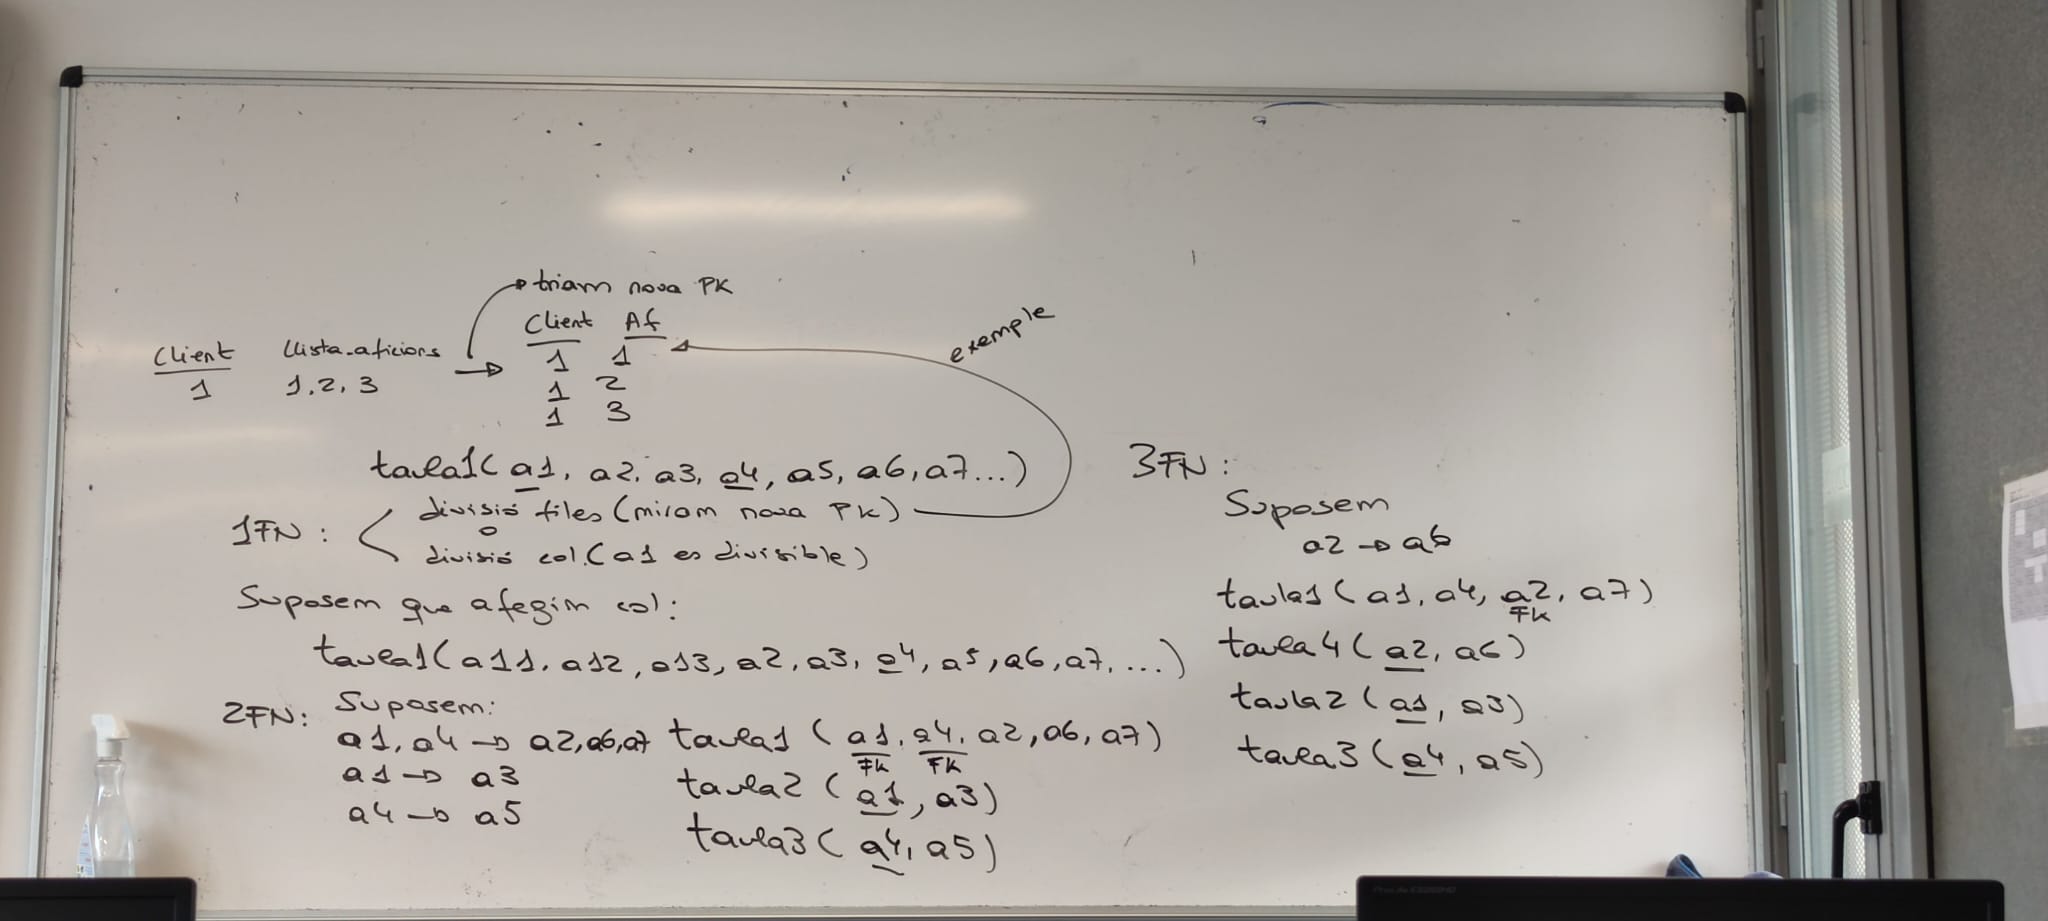 triam nova PK
Client Af
1 1
1 2
1 3
Client Llista_aficions
1 1,2,3
exemple
taula1(a1, a2, a3, a4, a5, a6, a7...)
1FN: divisió files (miram nova PK)
o
divisió col. (a1 es divisible)
Suposem que afegim col:
taula1(a11, a12, a13, a2, a3, a4, a5, a6, a7, ...)
2FN: Suposem:
a1, a4 → a2,a6,a7
a1 → a3
a4 → a5
taula1 (a1, a4, a2, a6, a7)
FK FK
taula2 (a1, a3)
taula3 (a4, a5)
3FN:
Suposem
a2 → a6
taula1 (a1, a4, a2, a7)
FK
taula4 (a2, a6)
taula2 (a1, a3)
taula3 (a4, a5)